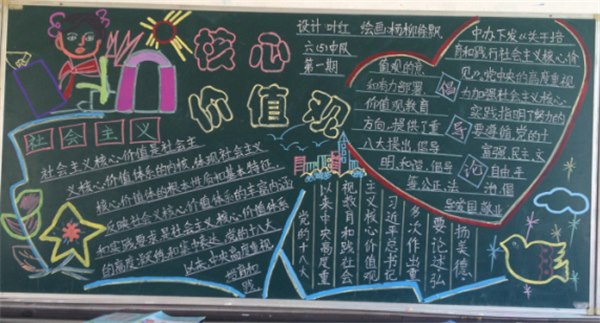 设计:叶红 绘画:杨柳徐飘
六(5)中队
第一期
核心
价值观
社会主义
社会主义核心价值是社会主
义核心价值体系的内核,体现社会主义
核心价值体的根本性质和基本特征,
反映社会主义核心价值体系的丰富内涵
和实践要求是社会主义核心价值体系
的高度凝练和集中表达。党的十八大
以来,中央高度重视
培育和
践
党的十八大
以来中央高度重
视教育和践社会
主义核心价值观
习近平总书记
多次作出重
要论述弘
扬美德
中办下发《关于培
育和践行社会主义核心价
值观的意
见》党中央的高度重视
和有力部署
力加强社会主义核心
价值观教育
实践指明了努力的
方向,提供了重
要遵循党的十
八大提出,倡导
富强、民主、文
明、和谐,倡导
自由、平
等、公正、法
治,倡
导爱国、敬业
倡
导
论